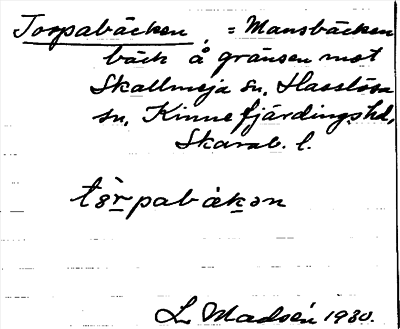 Torpabäcken, = Mansbäcken
bäck å gränsen mot
Skallmeja sn, Hasslösa
sn, Kinnefjärdings hd,
Skarab. l.
tòrpabäkən
L. Madsén 1930.